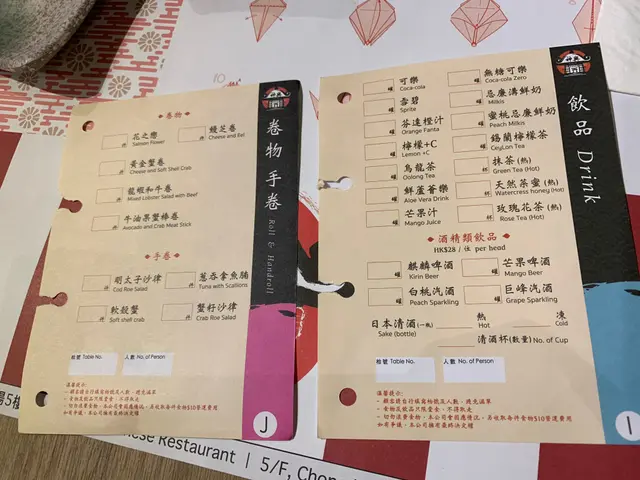 卷物 手卷 Roll & Handroll
卷物
花之戀
Salmon Flower
鰻芝卷
Cheese and Eel
黃金蟹卷
Cheese and Soft Shell Crab
龍蝦和牛卷
Mixed Lobster Salad with Beef
牛油果蟹棒卷
Avocado and Crab Meat Stick
手卷
明太子沙律
Cod Roe Salad
葱吞拿魚腩
Tuna with Scallions
軟殼蟹
Soft shell crab
蟹籽沙律
Crab Roe Salad
枱號 Table No.
人數 No. of Person
溫馨提示:
J
飲品 Drink
可樂
Coca-cola
無糖可樂
Coca-cola Zero
雪碧
Sprite
忌廉溝鮮奶
Milkis
芬達橙汁
Orange Fanta
蜜桃忌廉鮮奶
Peach Milkis
檸檬+C
Lemon +C
錫蘭檸檬茶
CeyLon Tea
烏龍茶
Oolong Tea
抹茶(熱)
Green Tea (Hot)
鮮蘆薈樂
Aloe Vera Drink
天然茶蜜(熱)
Watercress honey (Hot)
芒果汁
Mango Juice
玫瑰花茶(熱)
Rose Tea (Hot)
酒精類飲品
HK$28 / 位 per head
麒麟啤酒
Kirin Beer
芒果啤酒
Mango Beer
白桃汽酒
Peach Sparkling
巨峰汽酒
Grape Sparkling
日本清酒(一瓶)
Sake (bottle)
熱
Hot
凍
Cold
清酒杯(數量) No. of Cup
枱號 Table No.
人數 No. of Person
溫馨提示:
I
Restaurant | 5/F,